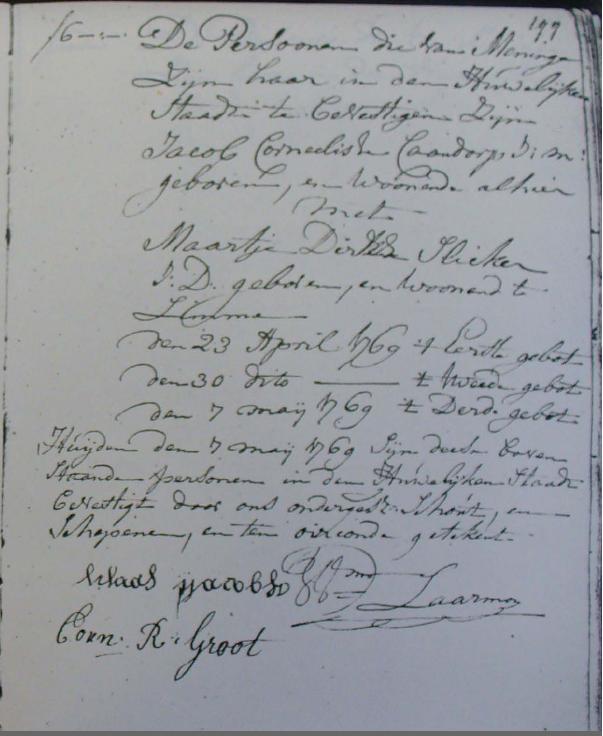 197
16 De Persoonen die van Meninge
Zijn haar in den Huwelijken
Staadt te bevestigen Zijn
Jacob Cornelisse Caandorp J: m:
geboren, en Woonende alhier
met
Maartje Dirkse Slicker
J. D. geboren, en Woonend t
Limme
den 23 April 1769 t Eerste gebot
den 30 dito t tweede gebot
den 7 maij 1769 t Derde gebot
Huijden den 7 maij 1769 Sijn deese boven
Staande persoonen in den Huwelijken Staadt
bevestigt door ons ondergesz: Schout, en
Schepenen, en ten oirconde getekent
klaas jacobs
Laarman
Corn: R: Groot